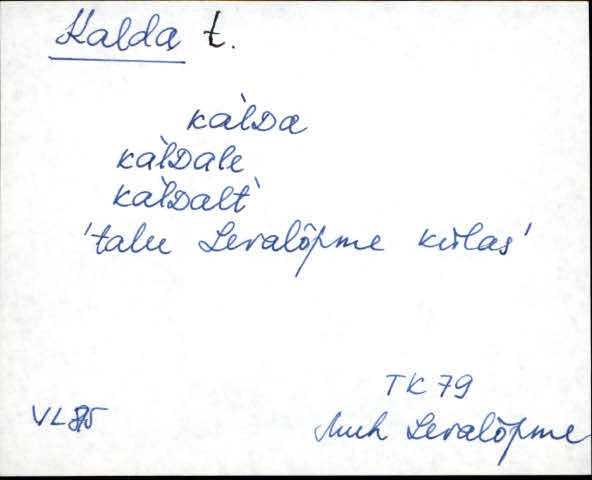 Kalda t.
kàlDa
kàlDale
kàlDalt
'talu Levalõpme külas'
TK 79
VL 85
Muh Levalõpme